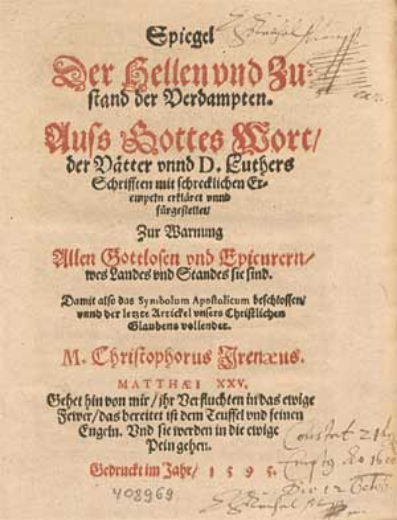 Spiegel
Der Hellen vnd Zu-
stand der Verdampten.
Auss Gottes Wort/
der Vätter vnnd D. Luthers
Schrifften mit schrecklichen Ex-
empeln erkläret vnnd
fürgestellet/
Zur Warnung
Allen Gottlosen vnd Epicurern/
wes Landes vnd Standes sie sind.
Damit also das Symbolum Apostolicum beschlossen/
vnnd der letzte Artickel vnsers Christlichen
Glaubens vollendet.
M. Christophorus Irenæus.
MATTHÆI XXV.
Gehet hin von mir/ ihr Verfluchten in das ewige
Fewer/ das bereitet ist dem Teuffel vnd seinen
Engeln. Vnd sie werden in die ewige
Pein gehen.
Gedruckt im Jahr/ 1595.
408969